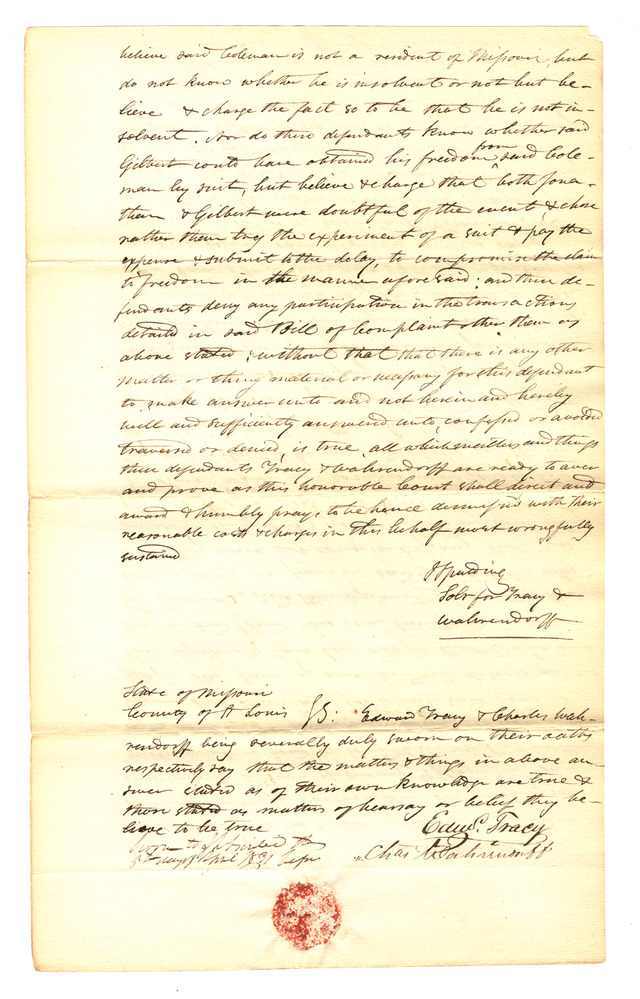 believe said Coleman is not a resident of Missouri, but
do not know whether he is insolvent or not but be-
lieve & charge the fact so to be that he is not in-
solvent. Nor do these defendants know whether said
Gilbert could have obtained his freedom from said Cole-
man by suit, but believe & charge that both Jona-
tham & Gilbert were doubtful of the event, & chose
rather them try the experiment of a suit & pay the
expense & submit to the delay, to compromise the claim
to freedom in the manner aforesaid; and these de-
fendants deny any participation in the transactions
detailed in said Bill of Complaint other them as
above stated; without that that there is any other
matter or thing material or necessary for this defendant
to make answer unto and not herein and hereby
well and sufficiently answered unto, confessed or avoided
traversed or denied, is true, all which matters and things
these defendants Tracy & Wahrendorff are ready to aver
and prove as this honorable Court shall direct and
award & humbly prays to be hence dismissed with their
reasonable costs & charges in this behalf most wrongfully
sustained
J Spalding
Solr for Tracy &
Wahrendorff
State of Missouri
County of St Louis SS: Edward Tracy & Charles Wah-
rendorff being severally duly sworn on their oaths
respectively say that the matters & things in above an-
swer stated as of their own knowledge are true &
those stated as matters of hearsay or belief they be-
lieve to be true
Edwd. Tracy
Sworn to & subscribed
5th day of April 1831
Chas Wahrendorff